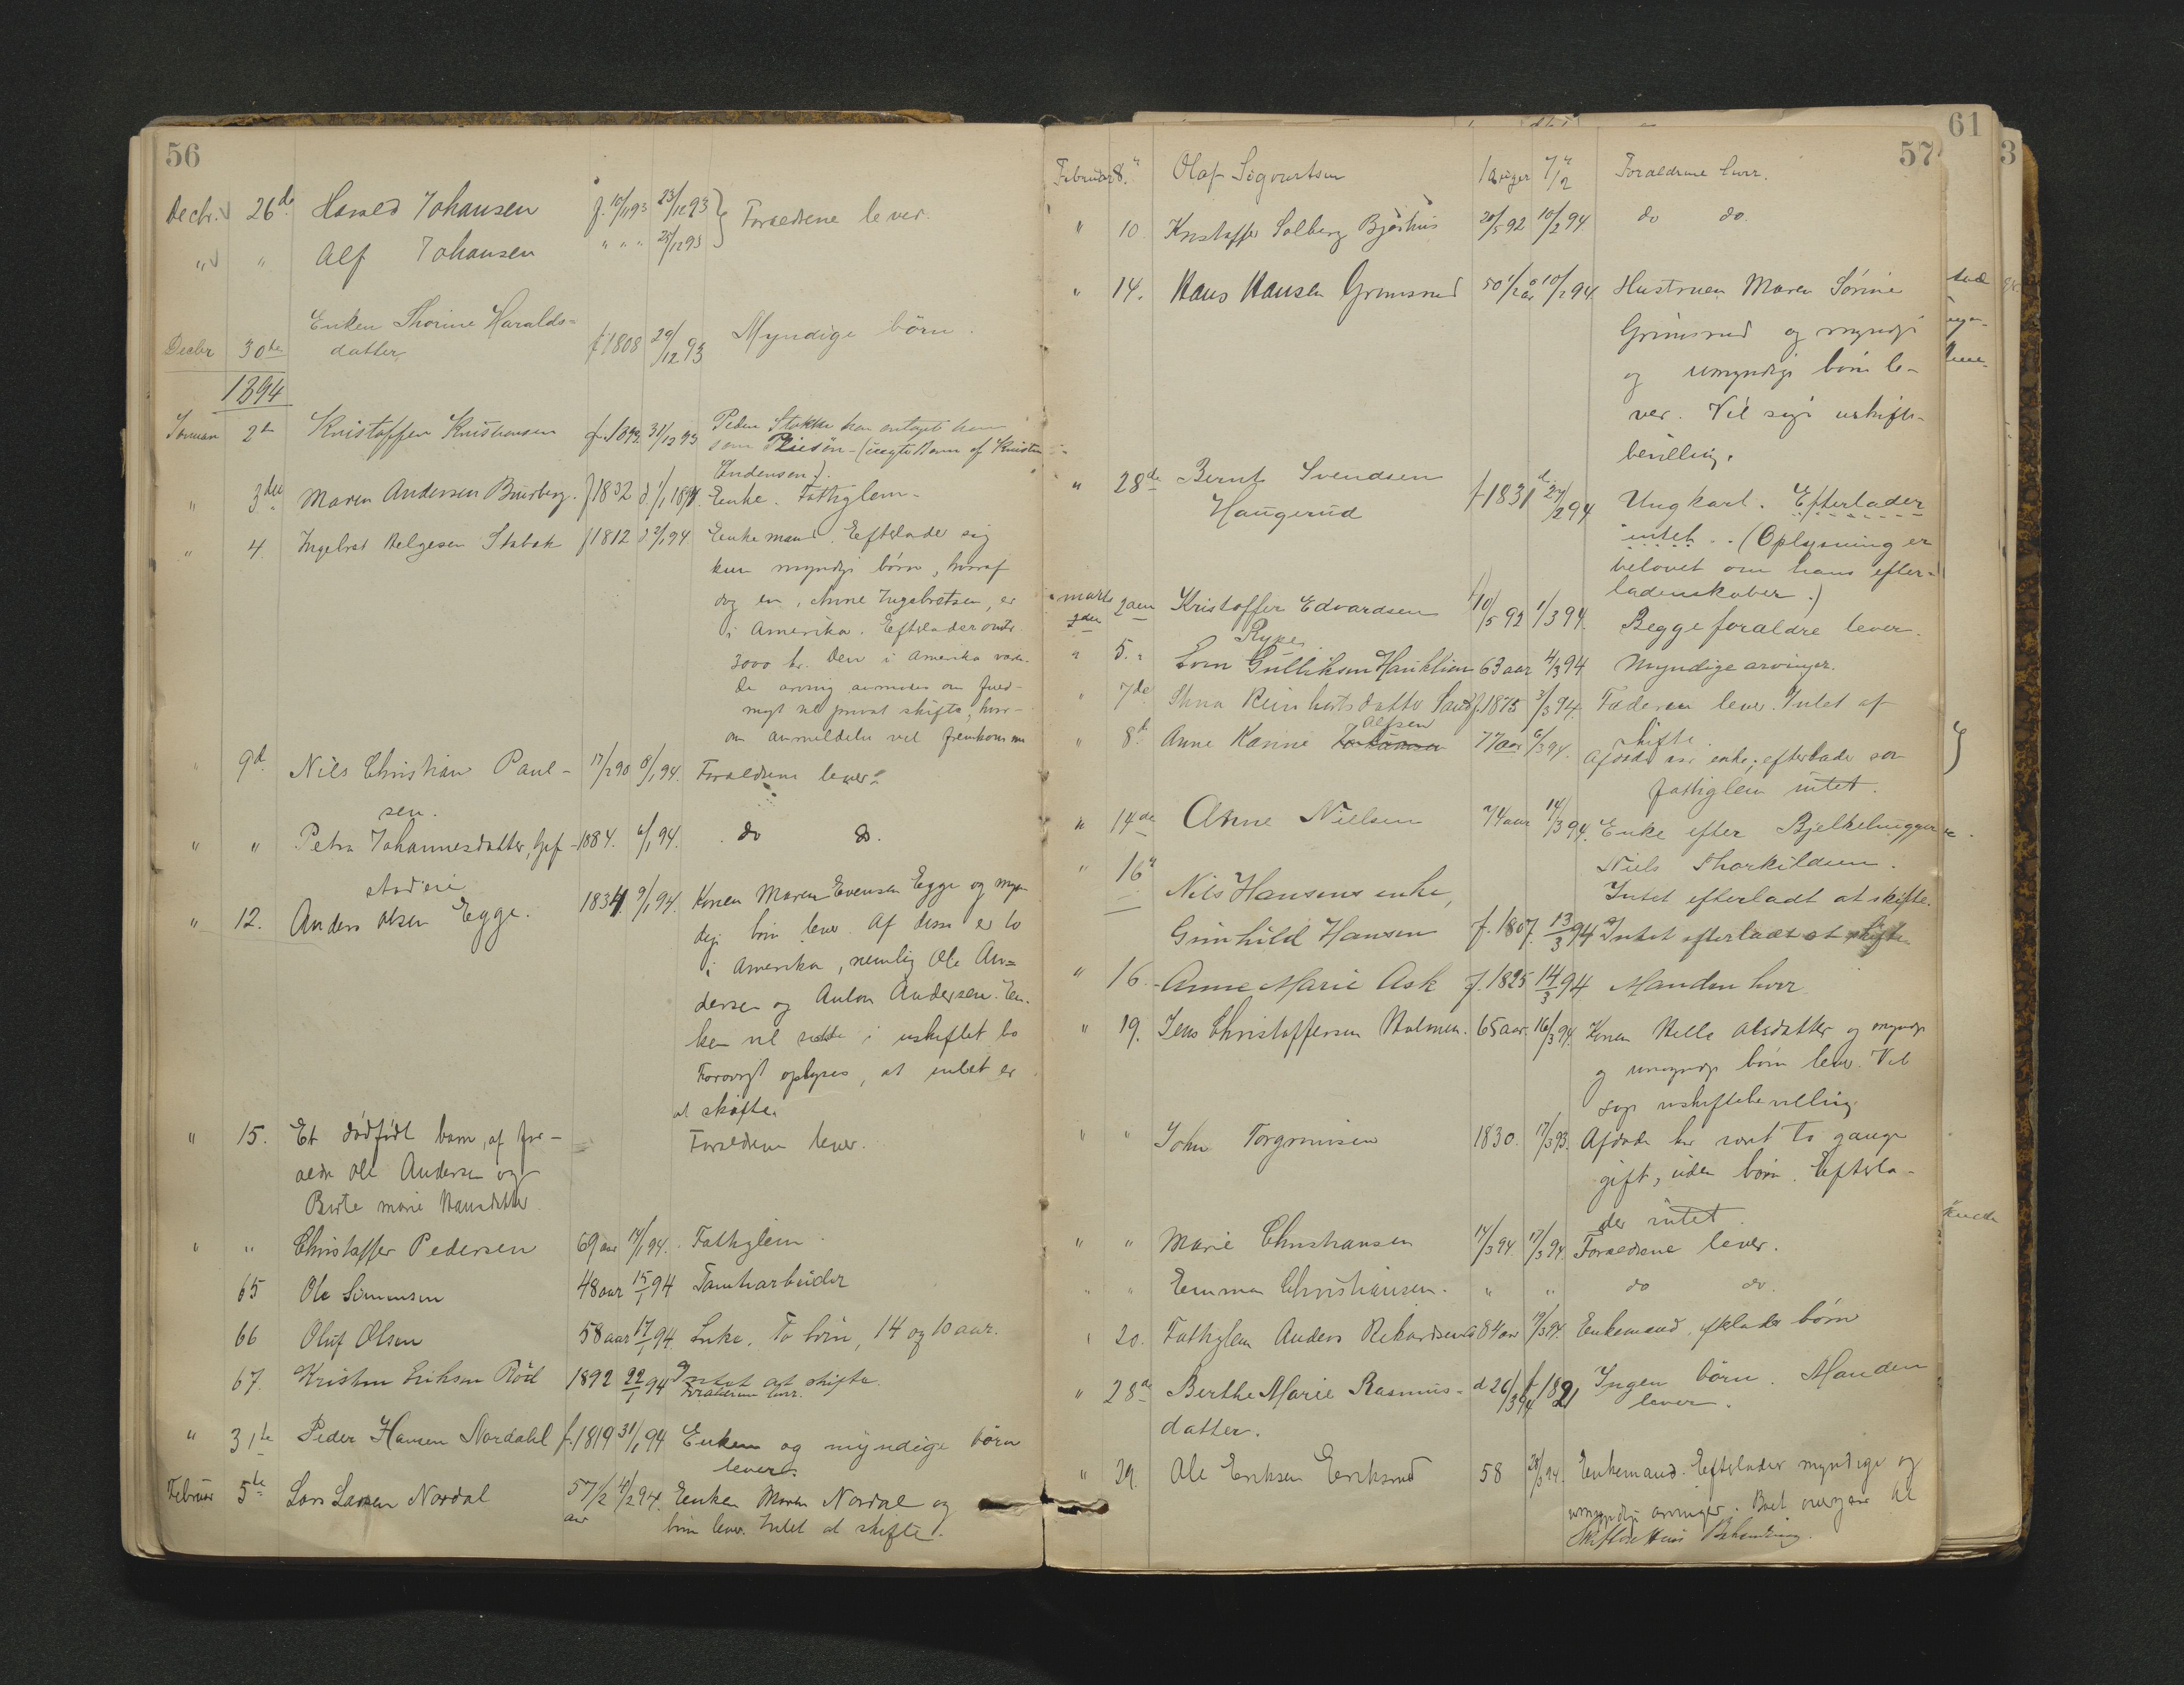 56
Decbr. 26de Harald Johansen f. 10/11 93 23/12 93 } Forældrene lever.
" " Alf Johansen " " " 25/12 93
Enken Thorine Haralds-
Decbr 30te datter f 1808 29/12 93 Myndige börn.
1894
Januar 2den Kristoffer Kristiansen f. 1892 31/12 93 Peder Stokke har antaget ham
som Pleiesön - (uægte Barn af Kristen
Andersen).
" 3die Maren Andersen Buerberg. f 1832 d. 1/1 1894. Enke. Fattiglem.
" 4. Ingebret Helgesen Stabæk f 1812 d 2/1 94. Enkemand. Efterlader sig
kun myndige börn, hvoraf
dog en, Anne Ingebretsen, er
i Amerika. Efterlader omtr.
3000 kr. Den i Amerika væren-
de arving anmodes om fuld-
magt til privat skifte, hvor-
om anmeldelse vil fremkomme
" 9de Nils Christian Paul- 17/2 90 8/1 94. Forældrene lever.
sen.
" " Petra Johannesdatter, Gjef- 1884. 6/1 94. do do.
stad eie
" 12. Anders Olsen Egge. 1834. 9/1 94. Konen Maren Evensen Egge og myn-
dige börn lever. Af disse er to
i Amerika, nemlig Ole An-
dersen og Anton Andersen. En-
ken vil sidde i uskiftet bo
Forövrigt oplyses, at intet er
at skifte.
" 15. Et dödfödt barn, af for- Forældrene lever.
ældre Ole Andersen og
Birte Marie Hansdatter
" " Christoffer Pedersen 69 aar 14/1 94. Fattiglem.
65 Ole Simensen 48 aar 15/1 94 Tomtarbeider
66 Oluf Olsen 58 aar 17/1 94. Enke. To börn, 14 og 10 aar.
67. Kristen Eriksen Röd 1892 22/1 94 Intet at skifte.
Forældrene lever.
" 31te Peder Hansen Nordahl f. 1819 31/1 94 Enken og myndige börn
lever.
Februar 5te Lars Larsen Nordal 57 1/2 4/2 94. Enken Maren Nordal og
aar börn lever. Intet at skifte.
57
61
3
Februar 8. " Olaf Sigvartsen 1 7/2 Forældrene lever.
" 10. Kristoffer Solberg Bjöshus 20/5 92 10/2 94. do do.
" 14. Hans Hansen Grimsrud 50 1/2 aar 10/2 94. Hustruen Maren Sörine
Grimsrud og myndige
og umyndige börn le-
ver. Vil söge uskifte-
bevilling.
" 28de Bernt Svendsen
Haugerud f. 1831 d. 27/2 94 Ungkarl. Efterlader
intet. (Oplysning er
belovet om hans efter-
ladenskaber.)
" marts 2den Kristoffer Edvardsen f 10/5 92 1/3 94. Begge forældre lever.
Rype
" 5. " Gulliksen Hauklien 63 aar 4/3 94 Myndige arvinger.
" 7de Reinhartsdatter f. 1875 3/3 94. Faderen lever. Intet at
skifte.
Olfsen
" 8de Anne Karine Johansen 77 aar 6/3 94. Afdöde var enke; efterlader som
fattiglem intet.
" 14de Anne Nielsen 74 aar 14/3 94. Enke efter Bjelkehugger
Niels Thorkildsen.
Intet efterladt at skifte.
" 16. Nils Hansens enke,
Gunhild Hansen f. 1807. 13/3 94 Intet efterladt at skifte
" 16. Anne Marie Ask f. 1825 14/3 94 Manden lever
" 19. Jens Christoffersen Holmen. 65 aar. 16/3 94. Konen Helle Olsdatter og myndige
og umyndige börn lever. Vil
söge uskiftebevilling.
" " John Torgrimsen 1830. 17/3 93. Afdöde har været to gange
gift, uden börn. Efterla-
der intet.
" " Marie Christiansen 14/3 94. 17/3 94. Forældrene lever.
" " Emma Christiansen. " " do do.
" 20. Fattiglem Anders Rikardsen 84 aar 19/3 94. Enkemand, efterlader börn
" 28de Berthe Marie Rasmus- d 26/3 94 f 1821 Ingen börn. Manden
datter. lever.
" 29. Ole Eriksen Eriksrud 58 28/3 94. Enkemand. Efterlader myndige og
umyndige arvinger. Boet overgaar til
Skifterettens Behandling.